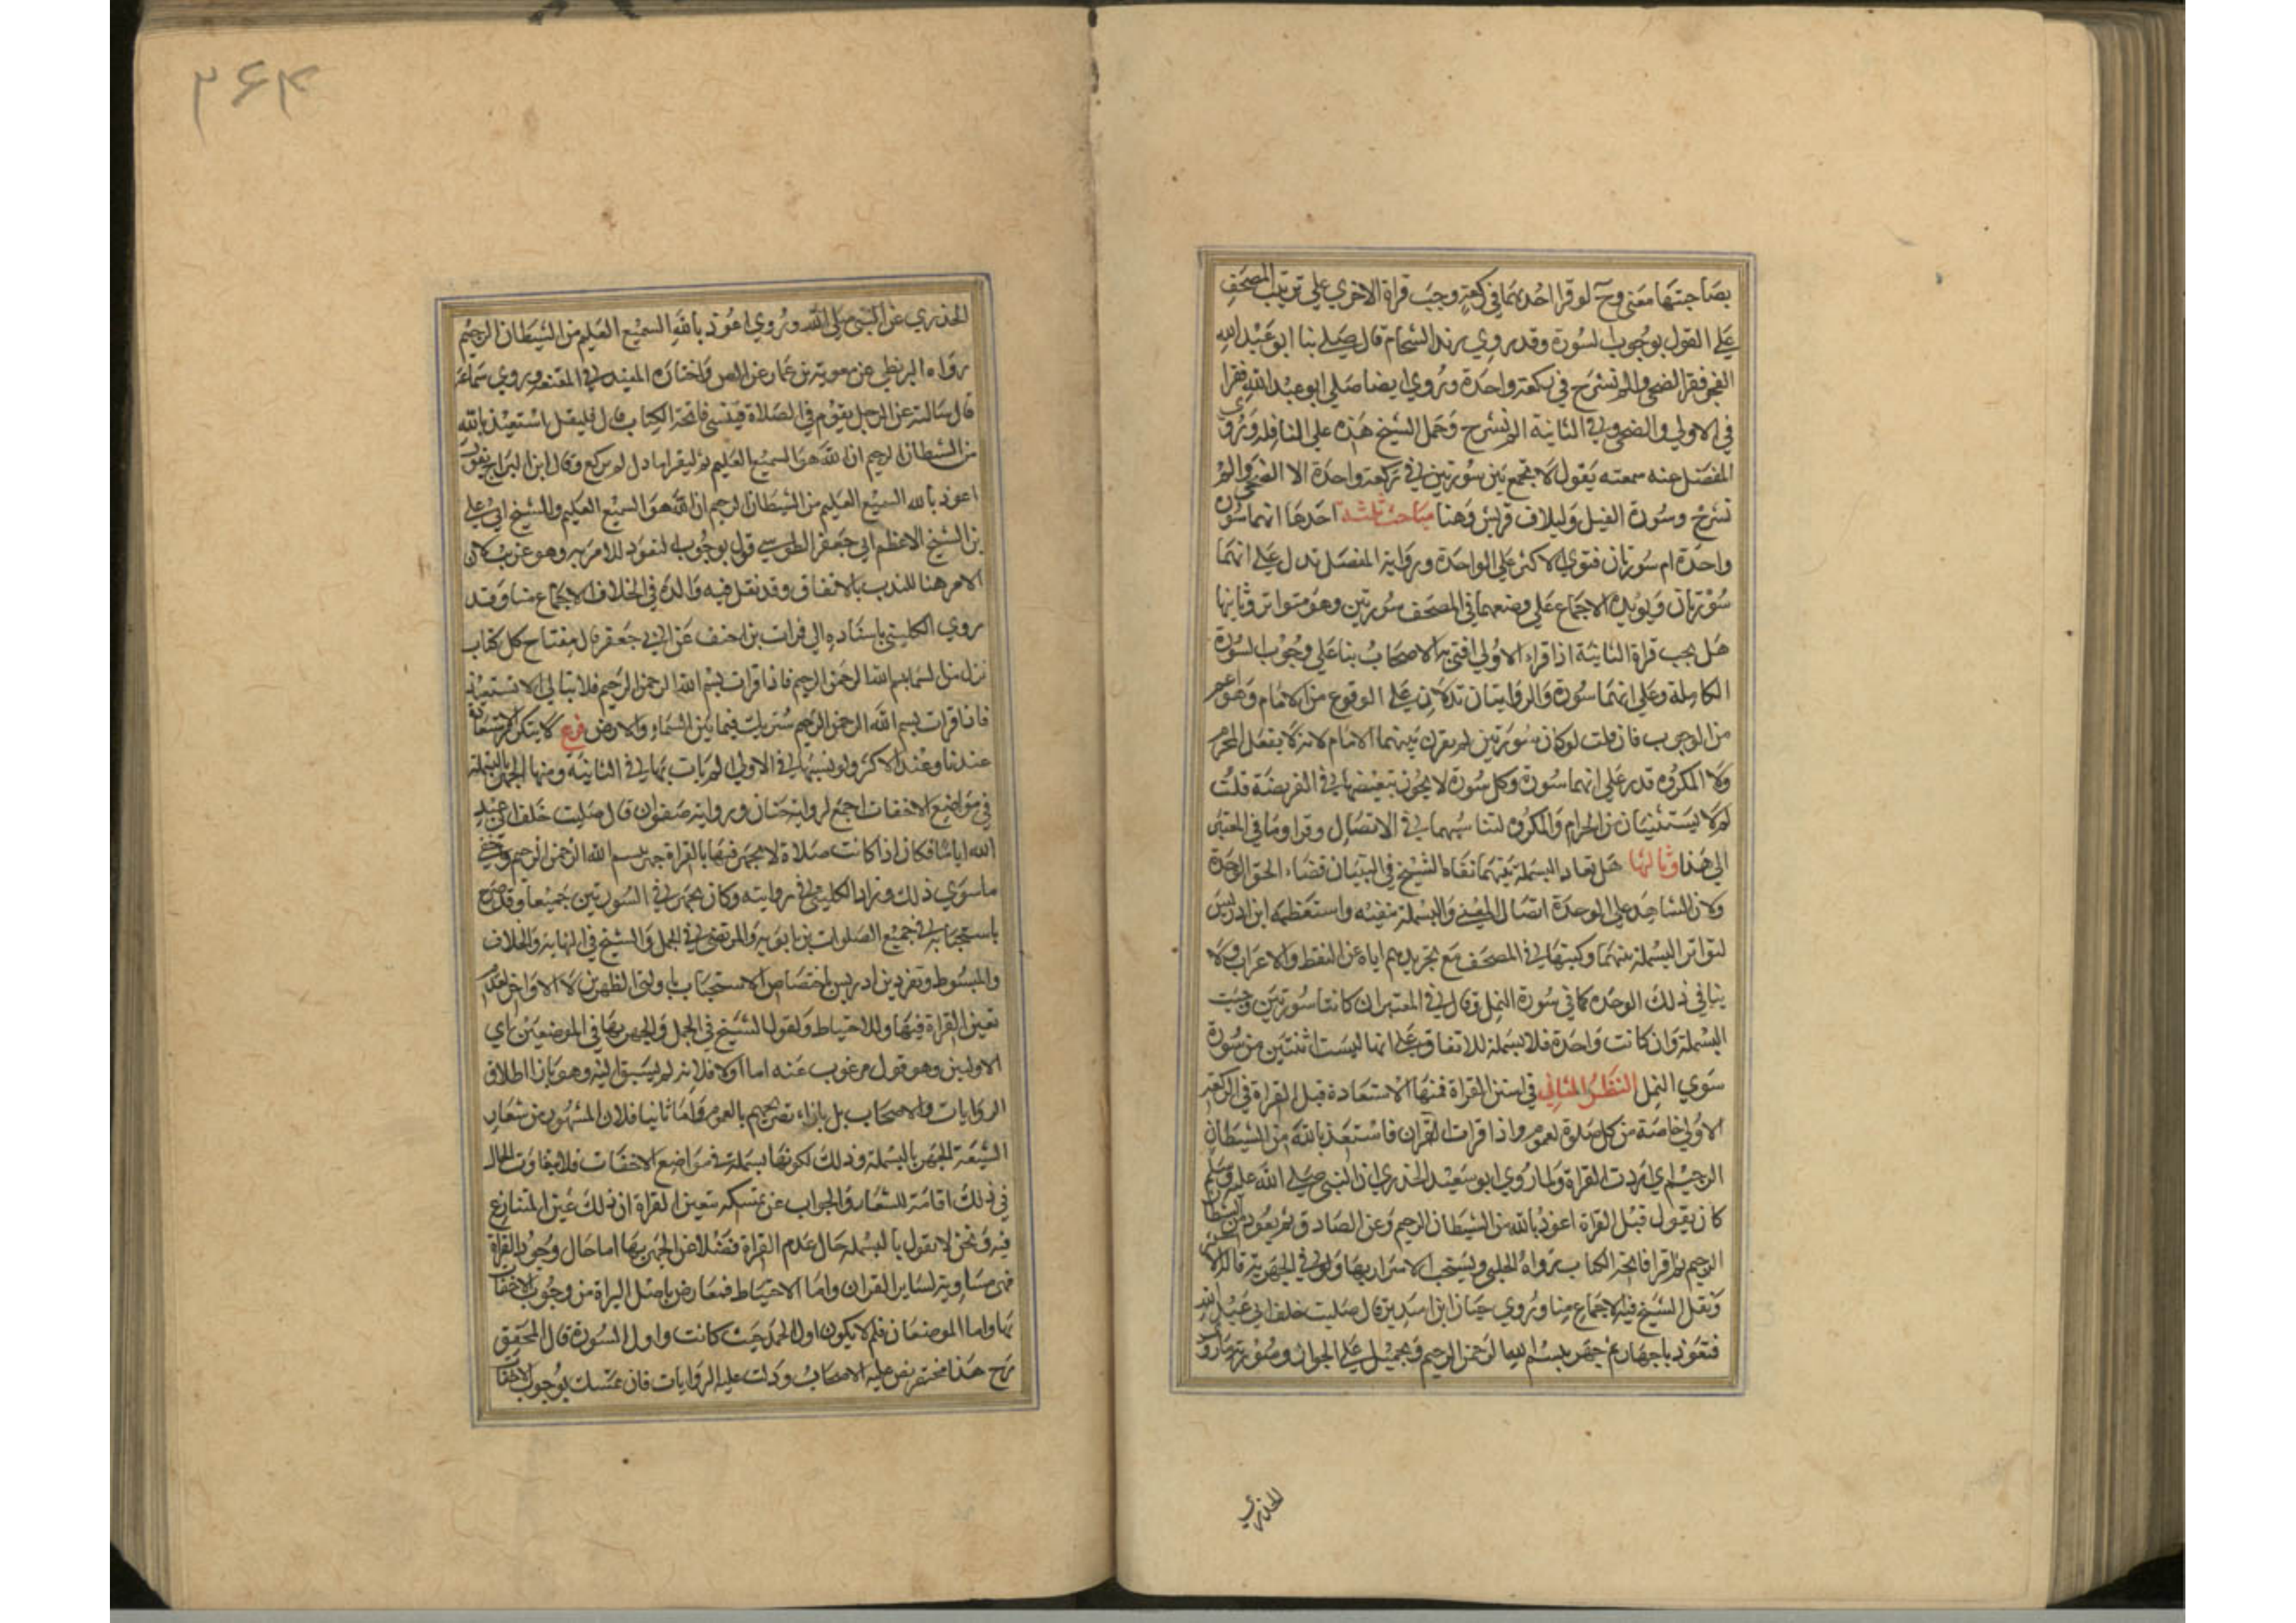 بصاحبتها معنى وح لو قرا احديهما في ركعة وجب قراة الاخرى على ترتيب المصحف
على القول بوجوب السورة وقد روي زيد الشحام قال صلى بنا ابو عبد الله
الفجر فقرا الضحى والم نشرح في ركعة واحدة وروي ايضا صلى ابو عبد الله فقرا
في الاولى والضحى وفي الثانية الم نشرح وحمل الشيخ هذه على النافلة وروى
المفضل عنه سمعته يقول لا يجمع بين سورتين في ركعة واحدة الا الضحى والم
نشرح وسورة الفيل وليلاف قريش وهنا مباحث ثلثه احدها انهما سورة
واحدة ام سورتان فتوى الاكثر على الواحدة ورواية المفضل تدل على انهما
سورتان ويويده الاجماع على وضعهما في المصحف سورتين وهو متواتر وثانيها
هل يجب قراة الثانية اذا قراء الاولى افتى به الاصحاب بنا على وجوب السورة
الكاملة وعلى انهما سورة والروايتان تدلان على الوقوع من الامام وهو اعم
من الوجوب فان قلت لو كان سورتين لم يقرن بينهما الامام لانه لا يفعل المحرم
ولا المكروه فدل على انهما سورة وكل سورة لا يجوز تبعيضها في الفريضة قلت
لم لا يستثنيان من الحرام والمكروه لتناسبهما في الاتصال وقد اوما في المعتبر
الى هذا وثالثها هل تعاد البسملة بينهما نفاه الشيخ في التبيان قضاء لحق الوحدة
ولان المشاهد على الوحدة اتصال المعنى والبسملة تنفيه واستعظمه ابن ادريس
لتواتر البسملة بينهما وكتبتها في المصحف مع تجريدهم اياه عن النقط والاعراب ولا
ينافي ذلك الوحدة كما في سورة النمل وقال في المعتبر ان كانتا سورتين وجبت
البسملة وان كانت واحدة فلا بسملة للاتفاق على انها ليست اثنتين من سورة
سوى النمل النظر الثاني في سنن القراة فمنها الاستعاذة قبل القراة في الركعة
الاولى خاصة من كل صلوة لعموم واذا قرات القران فاستعذ بالله من الشيطان
الرجيم اي اردت القراة ولما روي ابو سعيد الخدري ان النبي صلى الله عليه وسلم
كان يقول قبل القراة اعوذ بالله من الشيطان الرجيم وعن الصادق ثم تعوذ من الشيطان
الرجيم ثم اقرا فاتحة الكتاب رواه الحلبي ويستحب الاسرار بها ولو في الجهرية قاله الاكثر
ونقل الشيخ فيه الاجماع منا وروي حنان ابن سدير قال صليت خلف ابي عبد الله
فتعوذ باجهار ثم جهر ببسم الله الرحمن الرحيم ويحمل على الجواز وصورته ما روى
الخدري
الخدري عن النبي صلى الله وروي اعوذ بالله السميع العليم من الشيطان الرجيم
رواه البزنطي عن معوية بن عمار عن الص واختاره المفيد في المقنعه وروى سماعة
قال سالته عن الرجل يقوم في الصلاة فينسى فاتحة الكتاب قال فليقل استعيذ بالله
من الشيطان الرجيم ان الله هو السميع العليم ثم ليقراها دل لم يركع وقال ابن البراج يقول
اعوذ بالله السميع العليم من الشيطان الرجيم ان الله هو السميع العليم وللشيخ ابي علي
بن الشيخ الاعظم ابي جعفر الطوسي قول بوجوب التعوذ للامر به وهو غريب لان
الامر هنا للندب بالاتفاق وقد نقل فيه والده في الخلاف الاجماع منا وقد
روي الكليني باسناده الى فرات بن احنف عن ابي جعفر قال مفتاح كل كتاب
نزل من السما بسم الله الرحمن الرحيم فاذا قرات بسم الله الرحمن الرحيم فلا تبالي الا تستعيذ
فاذا قرات بسم الله الرحمن الرحيم سترتك فيما بين السماء والارض فرع لا يتكرر الاستعاذة
عندنا وعند الاكثر ولو نسيها في الاولى لم يات بها في الثانية ومنها الجهر بالبسملة
في مواضع الاخفات اجمع لرواية حنان ورواية صفوان قال صليت خلف ابي عبد
الله اياما فكان اذا كانت صلاة لا يجهر فيها بالقراة جهر ببسم الله الرحمن الرحيم واخفى
ما سوى ذلك وزاد الكليني في روايته وكان يجهر في السورتين جميعا وقد صرح
باستحبابه في جميع الصلوات بن بابويه والمرتضى في الجمل والشيخ في النهاية والخلاف
والمبسوط وتفرد بن ادريس باختصاص الاستحباب باولتي الظهرين لا الاواخر لعدم
تعين القراة فيها وللاحتياط ولقول الشيخ في الجمل والجهر بها في الموضعين اي
الاوليين وهو قول مرغوب عنه اما اولا فلانه لم يسبق اليه وهو بازا اطلاق
الروايات والاصحاب بل بازاء تصريحهم بالعموم واما ثانيا فلان المشهور من شعار
الشيعة الجهر بالبسملة وذلك لكونها بسملة في مواضع الاخفات فلا يتفاوت الحال
في ذلك اقامة للشعار والجواب عن تمسكه بتعين القراة ان ذلك عين المتنازع
فيه ونحن لا نقول بالبسملة حال عدم القراة فضلا عن الجهر بها اما حال وجود القراة
فهي مساوية لساير القران واما الاحتياط فمعارض باصل البراة من وجوب الاخفات
بها واما الموضعان فلم لا يكون اول الحمد حيث كانت واول السورة قال المحقق
رح هذا مختصر نص عليه الاصحاب ودلت عليه الروايات فان تمسك بوجوب الاخفات